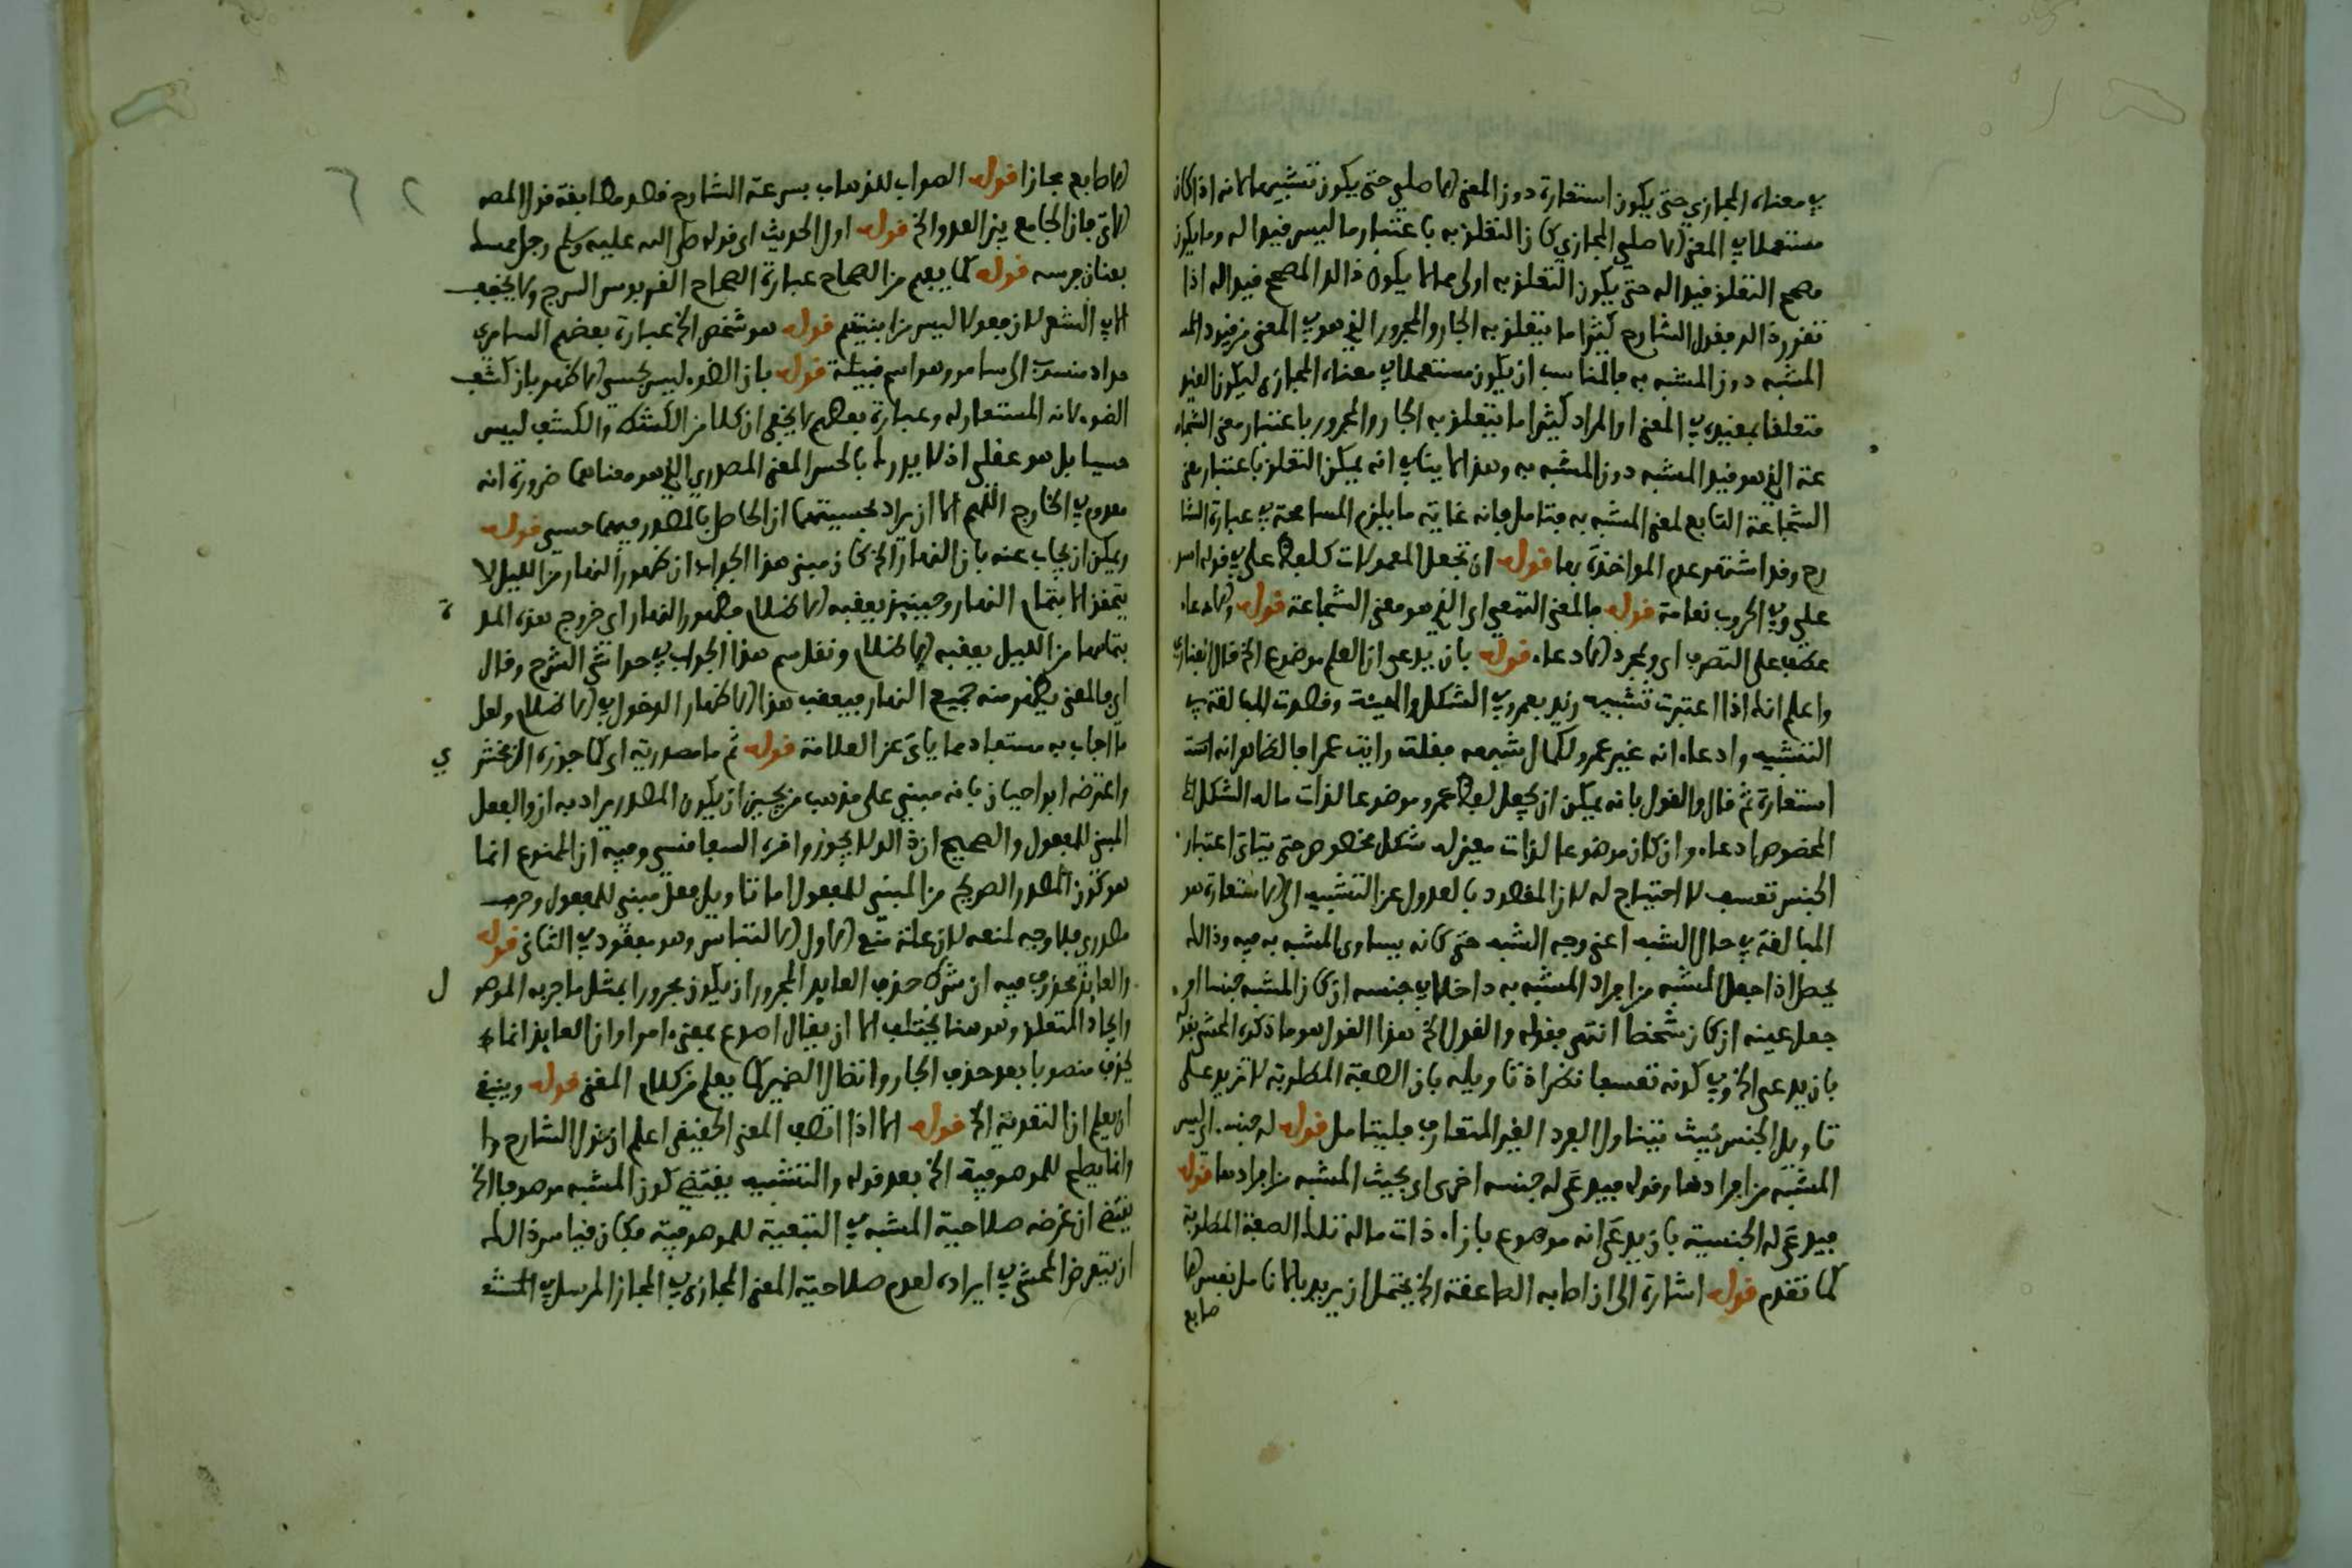 في معناه المجازي حتى يكون استعارة دون المعنى الاصلي حتى يكون تشبيها لانه اذا كان
مستعملا في المعنى الاصلي المجازي كان التعلق به باعتبار ما ليس قيدا له وما يكون
مصحح التعلق قيدا له حتى يكون التعلق به اولى مما لا يكون ذالك المصحح قيدا له اذا
تقرر ذالك فقول الشارح كثيرا ما يتعلق به الجار والمجرور الذي هو في المعنى من قيود
المشبه دون المشبه به فالمناسب ان يكون مستعملا في معناه المجازي ليكون القيد
متعلقا بمقيده في المعنى او المراد كثيرا ما يتعلق به الجار والمجرور باعتبار معنى الشجا
عة الذي هو قيد المشبه دون المشبه به وهذا لا ينافي انه يمكن التعلق باعتبار معنى
الشجاعة التابع لمعنى المشبه به فتامل فانه غاية ما يلزم المسامحة في عبارة الشا
رح وقد اشتهر عدم المواخذة بها قوله ان تجعل المعمولات كلفظ علي في قوله اسد
علي وفي الحروب نعامة قوله فالمعنى التبعي اي الذي هو معنى الشجاعة قوله والادعاء
عطف على التصرف اي ومجرد الادعاء قوله بان يدعى ان العلم موضوع الخ قال الفناري
واعلم انك اذا اعتبرت تشبيه زيد بعمرو في الشكل والهيئة وقصدت المبالغة في
التشبيه وادعاء انه غير عمرو لكمال شبهه فقلت رايت عمرا فالظاهر انه
استعارة ثم قال والقول بانه يمكن ان يجعل لفظ عمرو موضوعا لذات ما له الشكل
المخصوص ادعاء وان كان موضوعا لذات معين له شكل مخصوص حتى يتاتى اعتبار
الجنس تعسف لا احتياج له لان المقصود بالعدول عن التشبيه الى الاستعارة هو
المبالغة في حال الشبه اعني وجه الشبه حتى كانه يساوي المشبه به فيه وذالك
يحصل اذا جعل المشبه من افراد المشبه به داخلا في جنسه ان كان المشبه جنسا او
جعل عينه ان كان شخصا انتهى فقوله والقول الخ هذا القول هو ما ذكره المحشي بقوله
بان يدعى الخ وفي كونه تعسفا نظر اذ تاويله بان الصفة المطلوبة لا تزيد على
تاويل الجنس بحيث يتناول الفرد الغير المتعارف فليتامل قوله له جنسه اي ليس
المشبه من افرادها وقوله فيدعى له جنسه اخرى اي بحيث المشبه من افرادها قوله
فيدعى له الجنسية بان يدعى انه موضوع بازاء ذات ما له تلك الصفة المطلوبة
كما تقدم قوله اشارة الى ان اصابه الصاعقة الخ يحتمل ان يريد بالانامل نفسها
صابع
الاصابع مجازا قوله الصواب للذهاب بسرعة الشارح قصد مطابقة قول المصنف
الاتي فان الجامع بين العدو الخ قوله اول الحديث اي قوله صلى الله عليه وسلم رجل ممسك
بعنان فرسه قوله كما يفهم من الصحاح عبارة الصحاح القربوس السرج ولا يخفف
الا في الشعر لان فعولا ليس من ابنيتهم قوله هو شخص الخ عبارة بعضهم السامري
حداد منسوب الى سامر وهو اسم قبيلة قوله بان الضوء ليس بحسي الاظهر بان كشف
الضوء لانه المستعار له وعبارة بعضهم لا يخفى ان كلا من الكشط والكشف ليس
حسيا بل هو عقلي اذ لا يدرك بالحس المعنى المصدري الذي هو معناهما ضرورة انه
معدوم في الخارج اللهم الا ان يراد بحسيتهما ان الحاصل بالمصدر فيهما حسي قوله
ويمكن ان يجاب عنه بان النهار الخ كان مبنى هذا الجواب ان ظهور النهار من الليل لا
يتحقق الا بتمام النهار وحينئذ يعقبه الاظلام فظهور النهار اي خروج هذه المد ة
بتمامها من الليل يعقبه الاظلام ونقل سم هذا الجواب في حواشي الشرح وقال
اي فالمعنى يظهر منه جميع النهار فيعقب هذا الاظهار الدخول في الاظلام ولعل
ما اجاب به مستفاد مما ياتي عن العلامة قوله ثم ما مصدرية اي كما جوزه الزمخشر ي
واعترضه ابو احيان بانه مبني على مذهب من يجيز ان يكون المصدر يراد به ان والفعل
المبني للمفعول والصحيح ان ذالك لا يجوز واقره السفاقسي وفيه ان الممنوع انما
هو كون المصدر الصريح من المبني للمفعول اما تاويل فعل مبني للمفعول وحرف
مصدري فلا وجه لمنعه لان علة منع الاول الالتباس وهو مفقود في الثاني قوله
والعائد محذوف فيه ان شرط حذف العايد المجرور ان يكون مجرورا بمثل ما جر به الموصو ل
واتحاد المتعلق وهو هنا يختلف الا ان يقال اصدع بمعنى اومر او ان العايد انما
يحذف منصوبا بعد حذف الجار واتصال الضمير كما يعلم من كلام المغني قوله وينبغي
ان يعلم ان التقوية الخ قوله الا اذا اتصف المعنى الحقيقي اعلم ان قول الشارح
وانما يصلح للموصوفية الخ بعد قوله والتشبيه يقتضي كون المشبه موصوفا الخ
يقتضي ان غرضه صلاحية المشبه في التبعية للموصوفية فكان قياس ذالك
ان يتعرض المحشي في ايراده لعدم صلاحية المعنى المجازي في المجاز المرسل